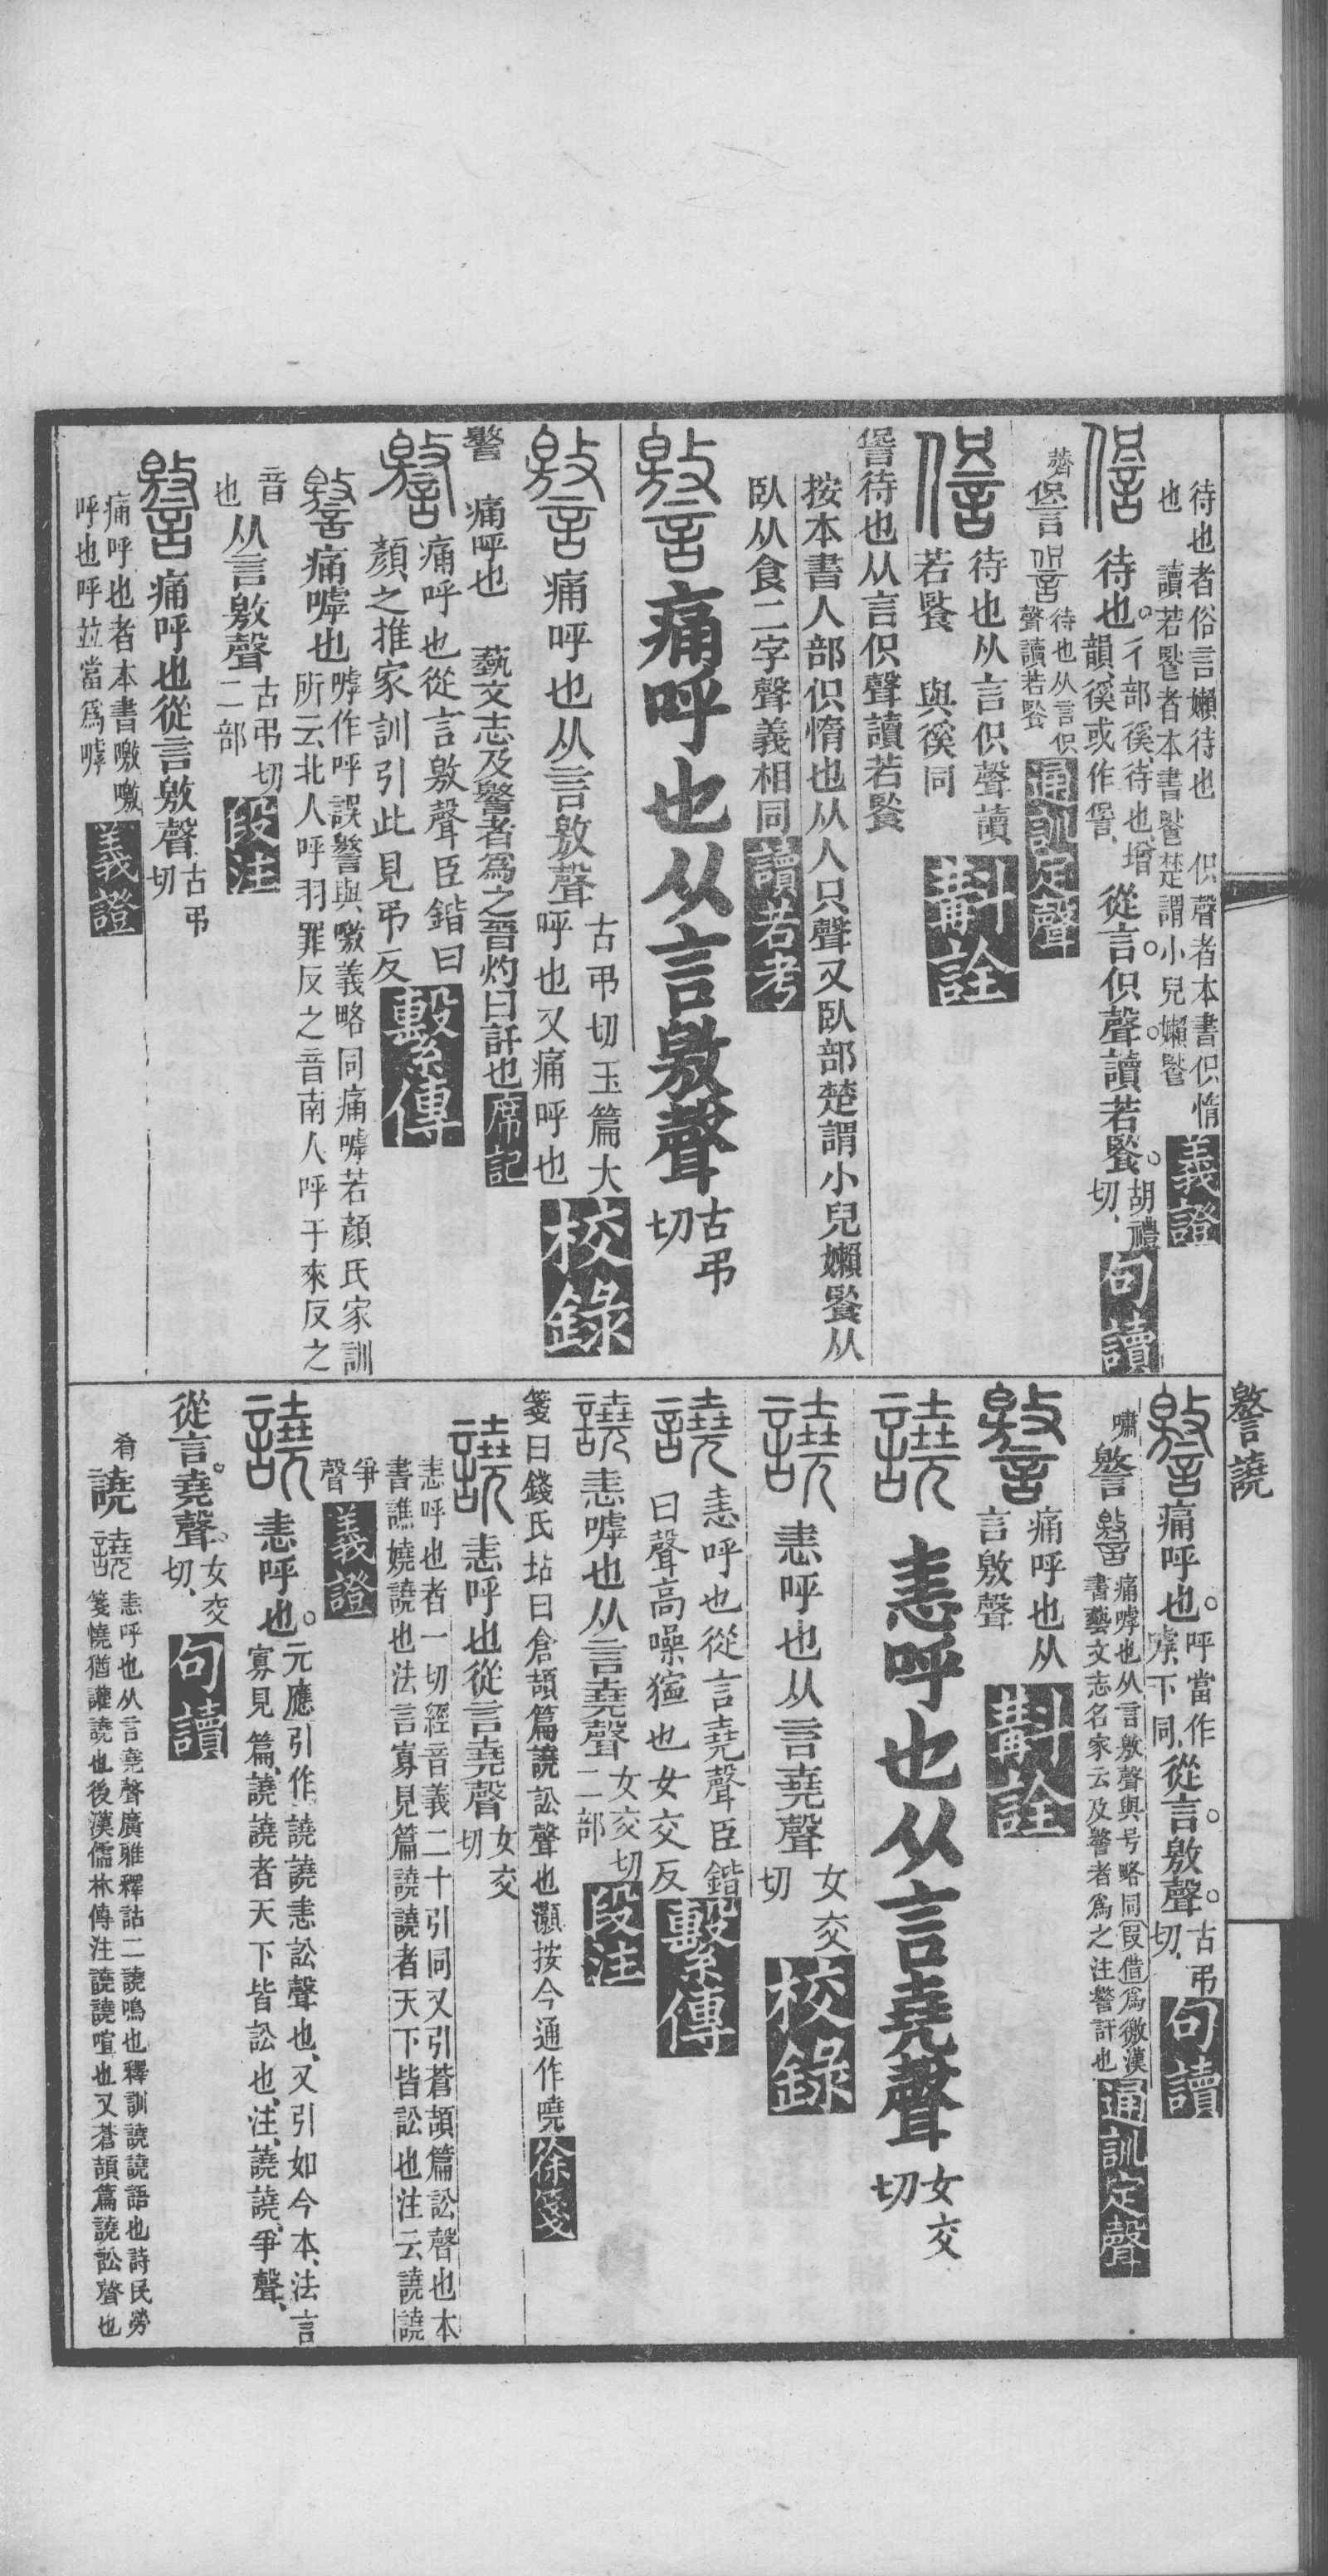 待也者俗言嬾待也　伿聲者本書伿惰
也　讀若餥者本書餥楚謂小兒嬾餥
義證
待也。彳部徯、待也、增
韻、徯或作䛠、
從言。伿聲。讀若餥。
胡禮
切、
句讀
䛠
待也从言伿
聲讀若餥
通訓定聲
待也从言伿聲讀
若餥　與徯同
斠詮
䛠待也从言伿聲讀若餥
按本書人部伿惰也从人只聲又臥部楚謂小兒嬾餥从
臥从食二字聲義相同
讀若考
警
痛呼也从言敫聲
古弔
切
痛呼也从言敫聲
古弔切玉篇大
呼也又痛呼也
校錄
警　痛呼也　藝文志及警者為之晉灼曰訐也
席記
痛呼也從言敫聲臣鍇曰
顏之推家訓引此見弔反
繫傳
痛嘑也
嘑作呼誤警與噭義略同痛嘑若顏氏家訓
所云北人呼羽罪反之音南人呼于來反之
音
也
从言敫聲
古弔切
二部
段注
痛呼也從言敫聲
古弔
切
痛呼也者本書噭噭
呼也呼竝當爲嘑
義證
警譊
痛呼也。呼當作
嘑、下同、
從言。敫聲。
古弔
切、
句讀
嘯
警
痛嘑也从言敫聲與号略同叚借爲徼漢
書藝文志名家云及警者爲之注警訐也
通訓定聲
痛呼也从
言敫聲
斠詮
譊
恚呼也从言堯聲
女交
切
恚呼也从言堯聲
女交
切
校錄
恚呼也從言堯聲臣鍇
曰聲高噪獰也女交反
繫傳
恚嘑也从言堯聲
女交切
二部
段注
箋曰錢氏坫曰倉頡篇譊訟聲也灝按今通作嘵
徐箋
恚呼也從言堯聲
女交
切
恚呼也者一切經音義二十引同又引蒼頡篇訟聲也本
書譙嬈譊也法言寡見篇譊譊者天下皆訟也注云譊譊
爭
聲
義證
恚呼也。
元應引作、譊譊恚訟聲也、又引如今本、法言
寡見篇、譊譊者天下皆訟也、注、譊譊、爭聲、
從言。堯聲。
女交
切、
句讀
肴
譊
恚呼也从言堯聲廣雅釋詁二譊鳴也釋訓譊譊語也詩民勞
箋憢猶讙譊也後漢儒林傳注譊譊喧也又蒼頡篇譊訟聲也